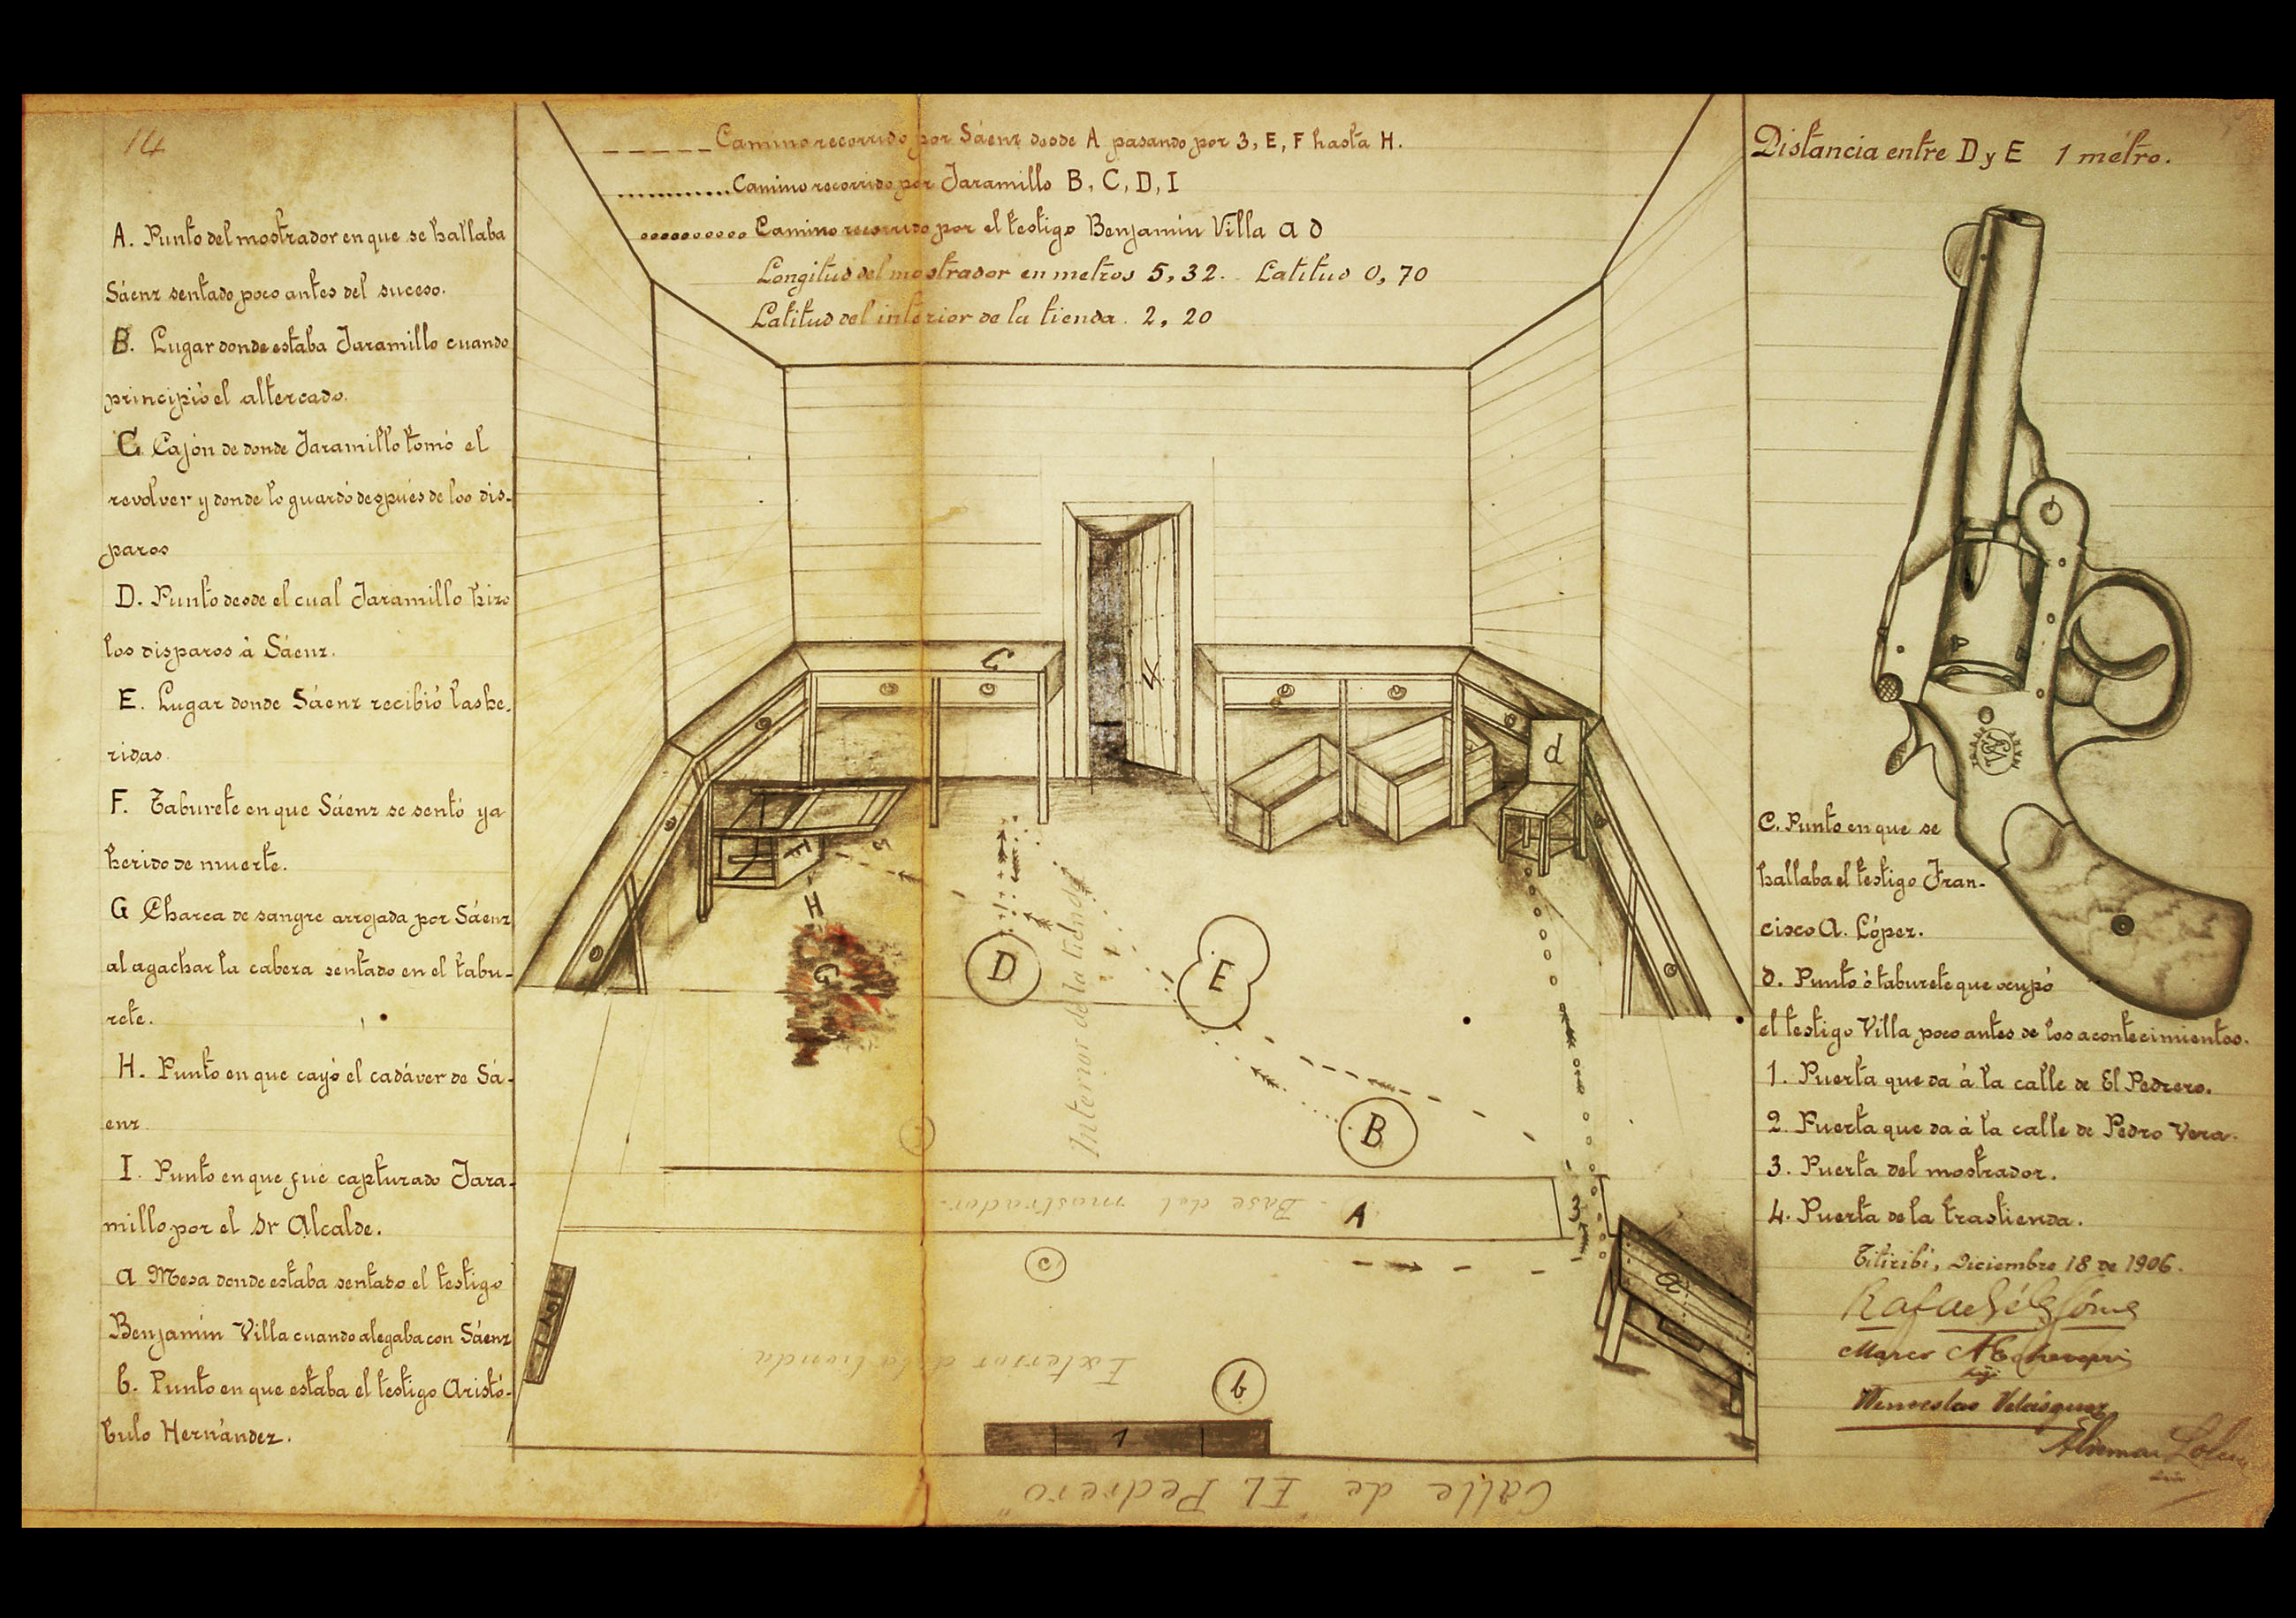 14
A. Punto del mostrador en que se hallaba
Sáenz sentado poco antes del suceso.
B. Lugar donde estaba Jaramillo cuando
principió el altercado.
C. Cajón de donde Jaramillo tomó el
revolver y donde lo guardó después de los dis-
paros
D. Punto desde el cual Jaramillo hizo
los disparos à Sáenz.
E. Lugar donde Sáenz recibió las he-
ridas.
F. Taburete en que Sáenz se sentó ya
herido de muerte.
G Charca de sangre arrojada por Sáenz
al agachar la cabeza sentado en el tabu-
rete.
H. Punto en que cayó el cadáver de Sá-
enz.
I. Punto en que fué capturado Jara-
millo por el Sr Alcalde.
a Mesa donde estaba sentado el testigo
Benjamín Villa cuando alegaba con Sáenz
b. Punto en que estaba el testigo Aristó-
bulo Hernández.
Camino recorrido por Sáenz desde A pasando por 3, E, F hasta H.
Camino recorrido por Jaramillo B, C, D, I
Camino recorrido por el testigo Benjamín Villa a d
Longitud del mostrador en metros 5,32. Latitud 0,70
Latitud del interior de la tienda. 2,20
C
4
d
F
H
G
D
E
Interior de la tienda
B
Base del mostrador
A
3
c
a
2
Exterior de la tienda
b
1
Calle de "EL Pedrero"
Distancia entre D y E 1 métro.
C. Punto en que se
hallaba el testigo Fran-
cisco A. López.
d. Punto ò taburete que ocupó
el testigo Villa poco antes de los acontecimientos.
1. Puerta que da à la calle de El Pedrero.
2. Puerta que da à la calle de Pedro Vera.
3. Puerta del mostrador.
4. Puerta de la trastienda.
Titiribí, Diciembre 18 de 1906.
Marco A Echeverri
Wenceslao Velásquez